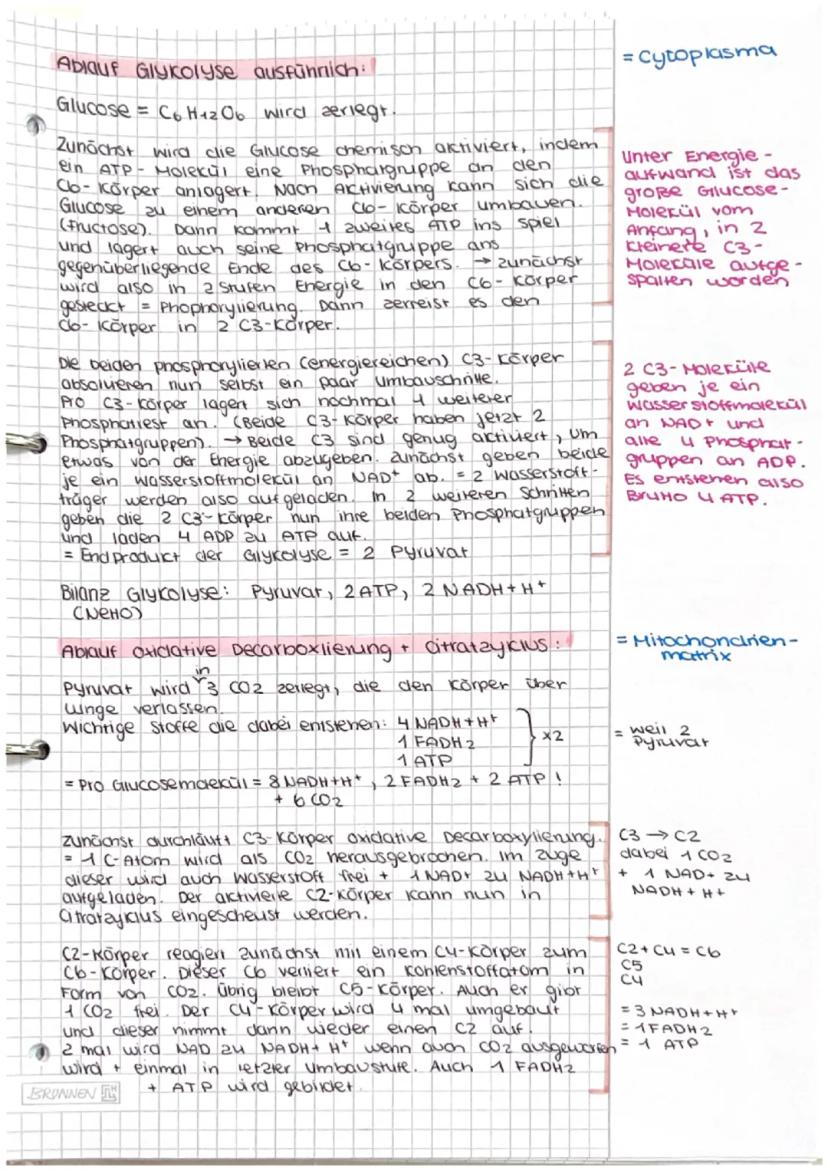 Ablauf Glykolyse ausführlich:
= Cytoplasma
Glucose = C6H12O6 wird zerlegt.
Zunächst wird die Glucose chemisch aktiviert, indem
ein ATP-Molekül eine Phosphatgruppe an den
C6-Körper anlagert. Nach Aktivierung kann sich die
Glucose zu einem anderen C6-Körper umbauen.
(Fructose). Dann kommt 1 zweites ATP ins Spiel
und lagert auch seine Phosphatgruppe ans
gegenüberliegende Ende des C6-Körpers. → zunächst
wird also in 2 Stufen Energie in den C6-Körper
gesteckt = Phophorylierung. Dann zerreist es den
C6-Körper in 2 C3-Körper.
Unter Energie-
aufwand ist das
große Glucose-
Molekül vom
Anfang, in 2
kleinere C3-
Moleküle aufge-
spalten worden
Die beiden phosphorylierten (energiereichen) C3-Körper
absolvieren nun selbst ein paar Umbauschritte.
Pro C3-Körper lagert sich nochmal 1 weiterer
Phosphatrest an. (Beide C3-Körper haben jetzt 2
Phosphatgruppen). → Beide C3 sind genug aktiviert, um
etwas von der Energie abzugeben. Zunächst geben beide
je ein Wasserstoffmolekül an NAD+ ab. = 2 Wasserstoff-
träger werden also aufgeladen. In 2 weiteren Schritten
geben die 2 C3-Körper nun ihre beiden Phosphatgruppen
und laden 4 ADP zu ATP auf.
= Endprodukt der Glykolyse = 2 Pyruvat
2 C3-Moleküle
geben je ein
Wasserstoffmolekül
an NAD+ und
alle 4 Phosphat-
gruppen an ADP.
Es entstehen also
Brutto 4 ATP.
Bilanz Glykolyse: Pyruvat, 2 ATP, 2 NADH+H+
(Netto)
Ablauf oxidative Decarboxlierung + Citratzyklus:
= Mitochondrien-
matrix
Pyruvat wird in 3 CO2 zerlegt, die den Körper über
Lunge verlassen.
Wichtige Stoffe die dabei entstehen: 4 NADH+H+
1 FADH2
1 ATP
x2
= weil 2
Pyruvat
= Pro Glucosemolekül = 8 NADH+H+, 2 FADH2 + 2 ATP!
+ 6 CO2
Zunächst durchläuft C3-Körper oxidative Decarboxylierung.
= 1 C-Atom wird als CO2 herausgebrochen. Im Zuge
dieser wird auch Wasserstoff frei + 1 NAD+ zu NADH+H+
aufgeladen. Der aktivierte C2-Körper kann nun in
Citratzyklus eingescheust werden.
C3 → C2
dabei 1 CO2
+ 1 NAD+ zu
NADH+H+
C2-Körper reagiert zunächst mit einem C4-Körper zum
C6-Körper. Dieser C6 verliert ein Kohlenstoffatom in
Form von CO2. Übrig bleibt C5-Körper. Auch er gibt
1 CO2 frei. Der C4-Körper wird 4 mal umgebaut
und dieser nimmt dann wieder einen C2 auf.
2 mal wird NAD zu NADH+H+ wenn auch CO2 ausgeworfen
wird + einmal in letzter Umbaustufe. Auch 1 FADH2
+ ATP wird gebildet.
C2+C4=C6
C5
C4
= 3 NADH+H+
= 1 FADH2
= 1 ATP
BRUNNEN